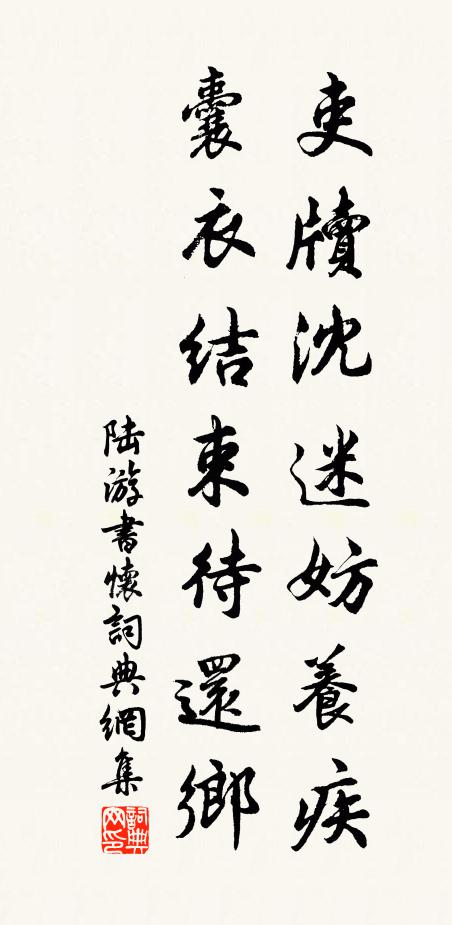 吏牘沈迷妨養疾
囊衣結束待還鄉
陆游書懷詞典網集
詞典網印